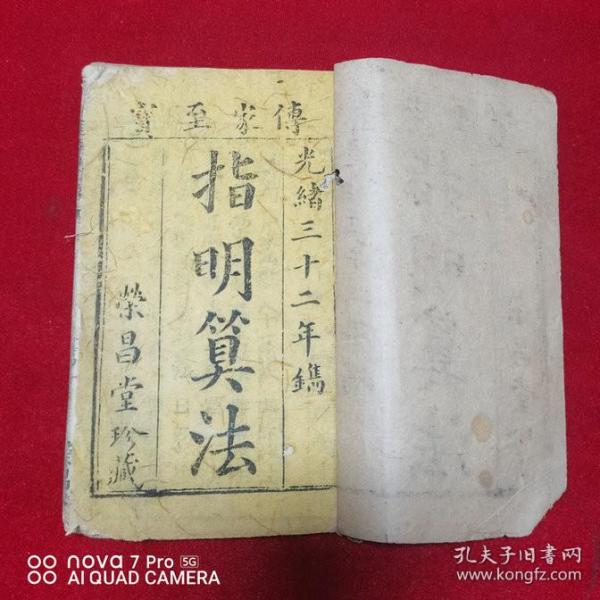 傳家至寶
光緒三十二年鐫
指明算法
榮昌堂珍藏
nova 7 Pro 5G
AI QUAD CAMERA
孔夫子旧书网
www.kongfz.com